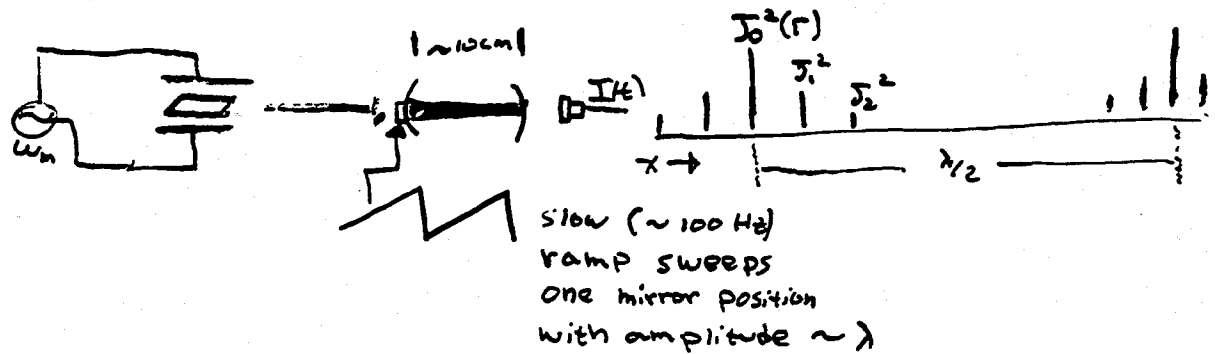 |~10cm|
J₀²(Γ)
J₁²
J₂²
I(t)
ωm
x →
λ/2
slow (~100 Hz)
ramp sweeps
one mirror position
with amplitude ~ λ